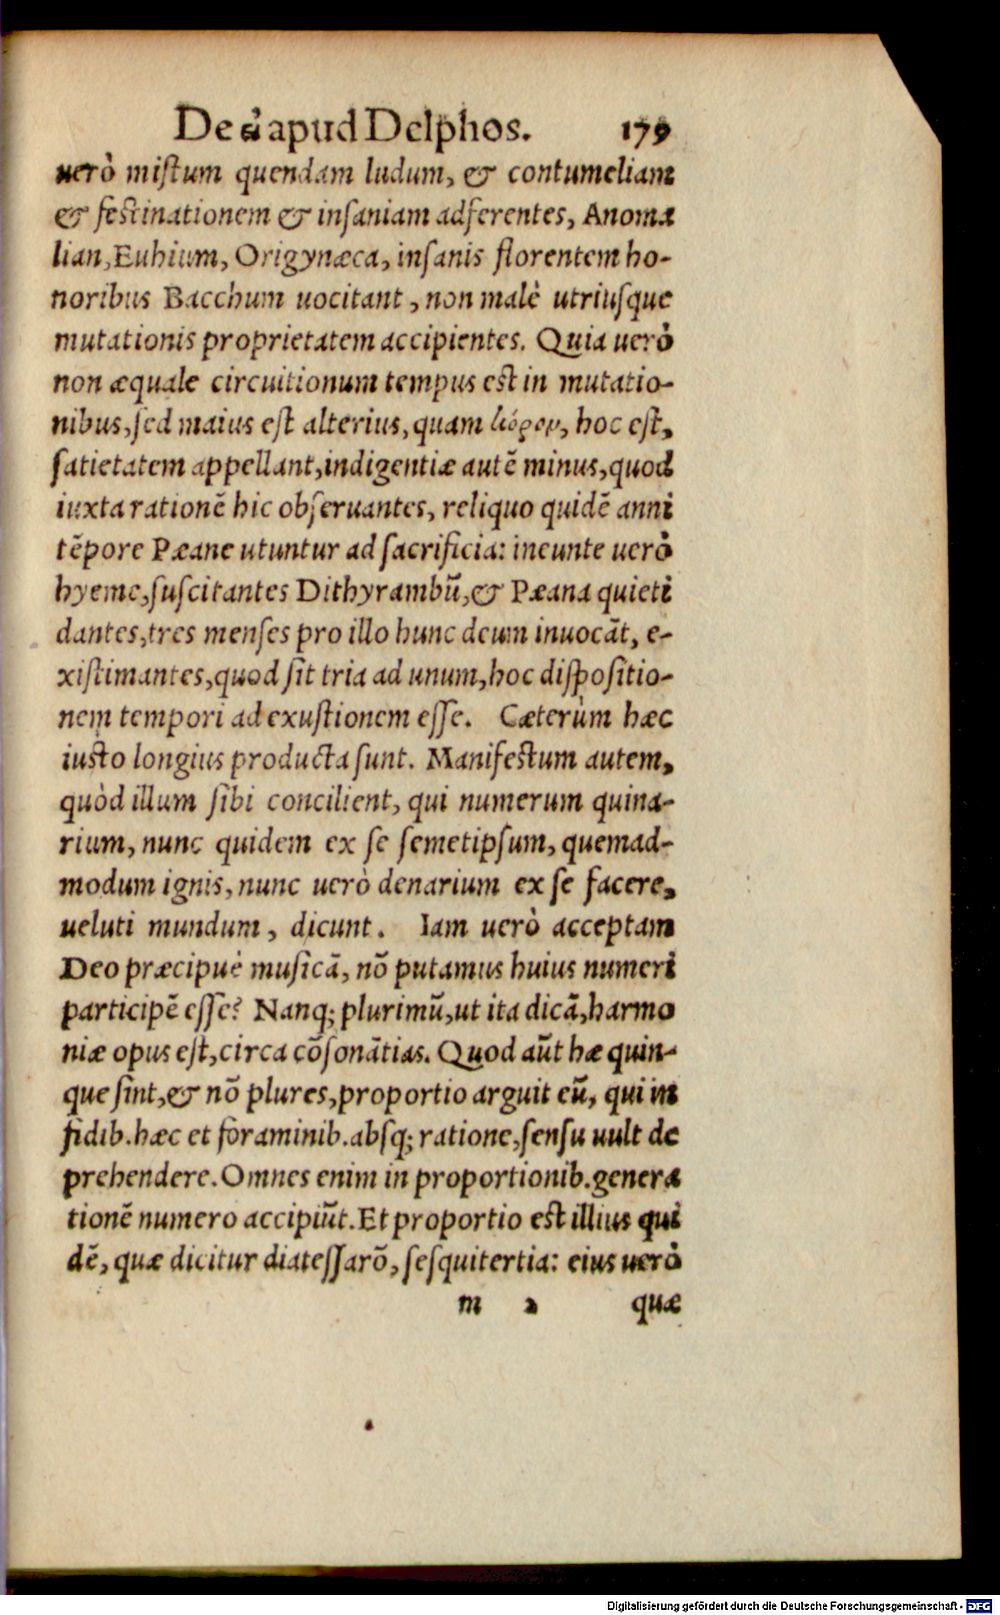 De ει apud Delphos. 179
uerò mistum quendam ludum, & contumeliam
& festinationem & insaniam adferentes, Anoma
lian, Euhium, Origynæca, insanis florentem ho-
noribus Bacchum uocitant, non malè utriusque
mutationis proprietatem accipientes. Quia uerò
non æquale circuitionum tempus est in mutatio-
nibus, sed maius est alterius, quam κόρον, hoc est,
satietatem appellant, indigentiæ autẽ minus, quod
iuxta rationẽ hic obseruantes, reliquo quidẽ anni
tẽpore Pæane utuntur ad sacrificia: ineunte uerò
hyeme, suscitantes Dithyrambũ, & Pæana quieti
dantes, tres menses pro illo hunc deum inuocãt, e-
xistimantes, quod sit tria ad unum, hoc dispositio-
nem tempori ad exustionem esse. Cæterùm hæc
iusto longius producta sunt. Manifestum autem,
quòd illum sibi concilient, qui numerum quina-
rium, nunc quidem ex se semetipsum, quemad-
modum ignis, nunc uerò denarium ex se facere,
ueluti mundum, dicunt. Iam uerò acceptam
Deo præcipuè musicã, nõ putamus huius numeri
participẽ esse? Nanq; plurimũ, ut ita dicã, harmo
niæ opus est, circa cõsonãtias. Quod aũt hæ quin-
que sint, & nõ plures, proportio arguit eũ, qui in
fidib. hæc et foraminib. absq; ratione, sensu uult de
prehendere. Omnes enim in proportionib. genera
tionẽ numero accipiũt. Et proportio est illius qui
dẽ, quæ dicitur diatessarõ, sesquitertia: eius uerò
m 2 quæ
Digitalisierung gefördert durch die Deutsche Forschungsgemeinschaft - DFG